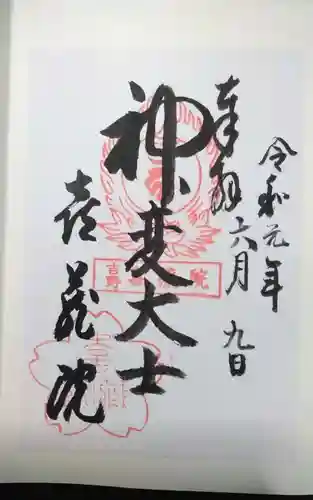 令和元年
奉拝 六月九日
神変大士
喜蔵院